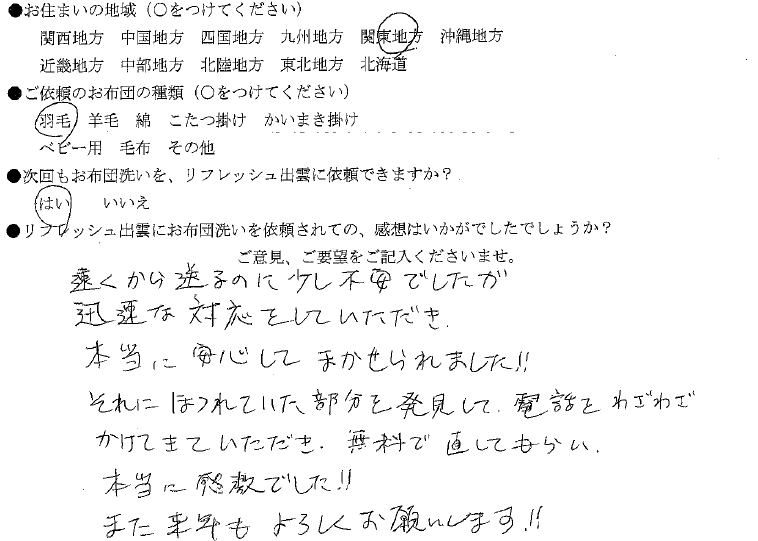 ●お住まいの地域（○をつけてください）
関西地方　中国地方　四国地方　九州地方　関東地方　沖縄地方
近畿地方　中部地方　北陸地方　東北地方　北海道
●ご依頼のお布団の種類（○をつけてください）
羽毛　羊毛　綿　こたつ掛け　かいまき掛け
ベビー用　毛布　その他
●次回もお布団洗いを、リフレッシュ出雲に依頼できますか？
はい　いいえ
●リフレッシュ出雲にお布団洗いを依頼されての、感想はいかがでしたでしょうか？
ご意見、ご要望をご記入くださいませ。
遠くから送るのに少し不安でしたが
迅速な対応をしていただき、
本当に安心してまかせられました!!
それにほつれていた部分を発見して、電話をわざわざ
かけてきていただき、無料で直してもらい、
本当に感激でした!!
また来年もよろしくお願いします!!